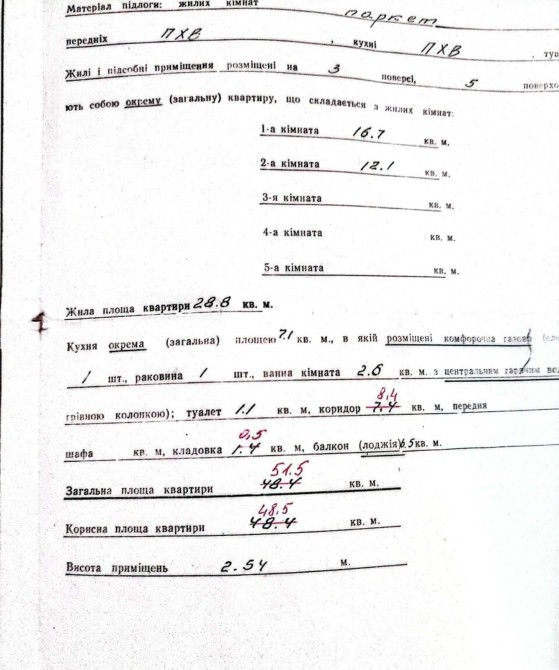 Матеріал підлоги: жилих кімнат паркет
передніх ПХВ , кухні ПХВ туа
Жилі і підсобні приміщення розміщені на 3 поверсі, 5 поверхо
ють собою окрему (загальну) квартиру, що складається з жилих кімнат:
1-а кімната 16.7 кв. м.
2-а кімната 12.1 кв. м.
3-я кімната кв. м.
4-а кімната кв. м.
5-а кімната кв. м.
Жила площа квартири 28.8 кв. м.
Кухня окрема (загальна) площею 7.1 кв. м., в якій розміщені комфорочна газова
1 шт., раковина 1 шт., ванна кімната 2.6 кв. м. з центральним гарячим во
8,4
грівною колонкою); туалет 1.1 кв. м, коридор 7.4 кв. м, передня
0,5
шафа кв. м, кладовка 1.4 кв. м, балкон (лоджія) 6,5 кв. м.
51.5
Загальна площа квартири 48.4 кв. м.
48,5
Корисна площа квартири 48.4 кв. м.
Висота приміщень 2.54 м.